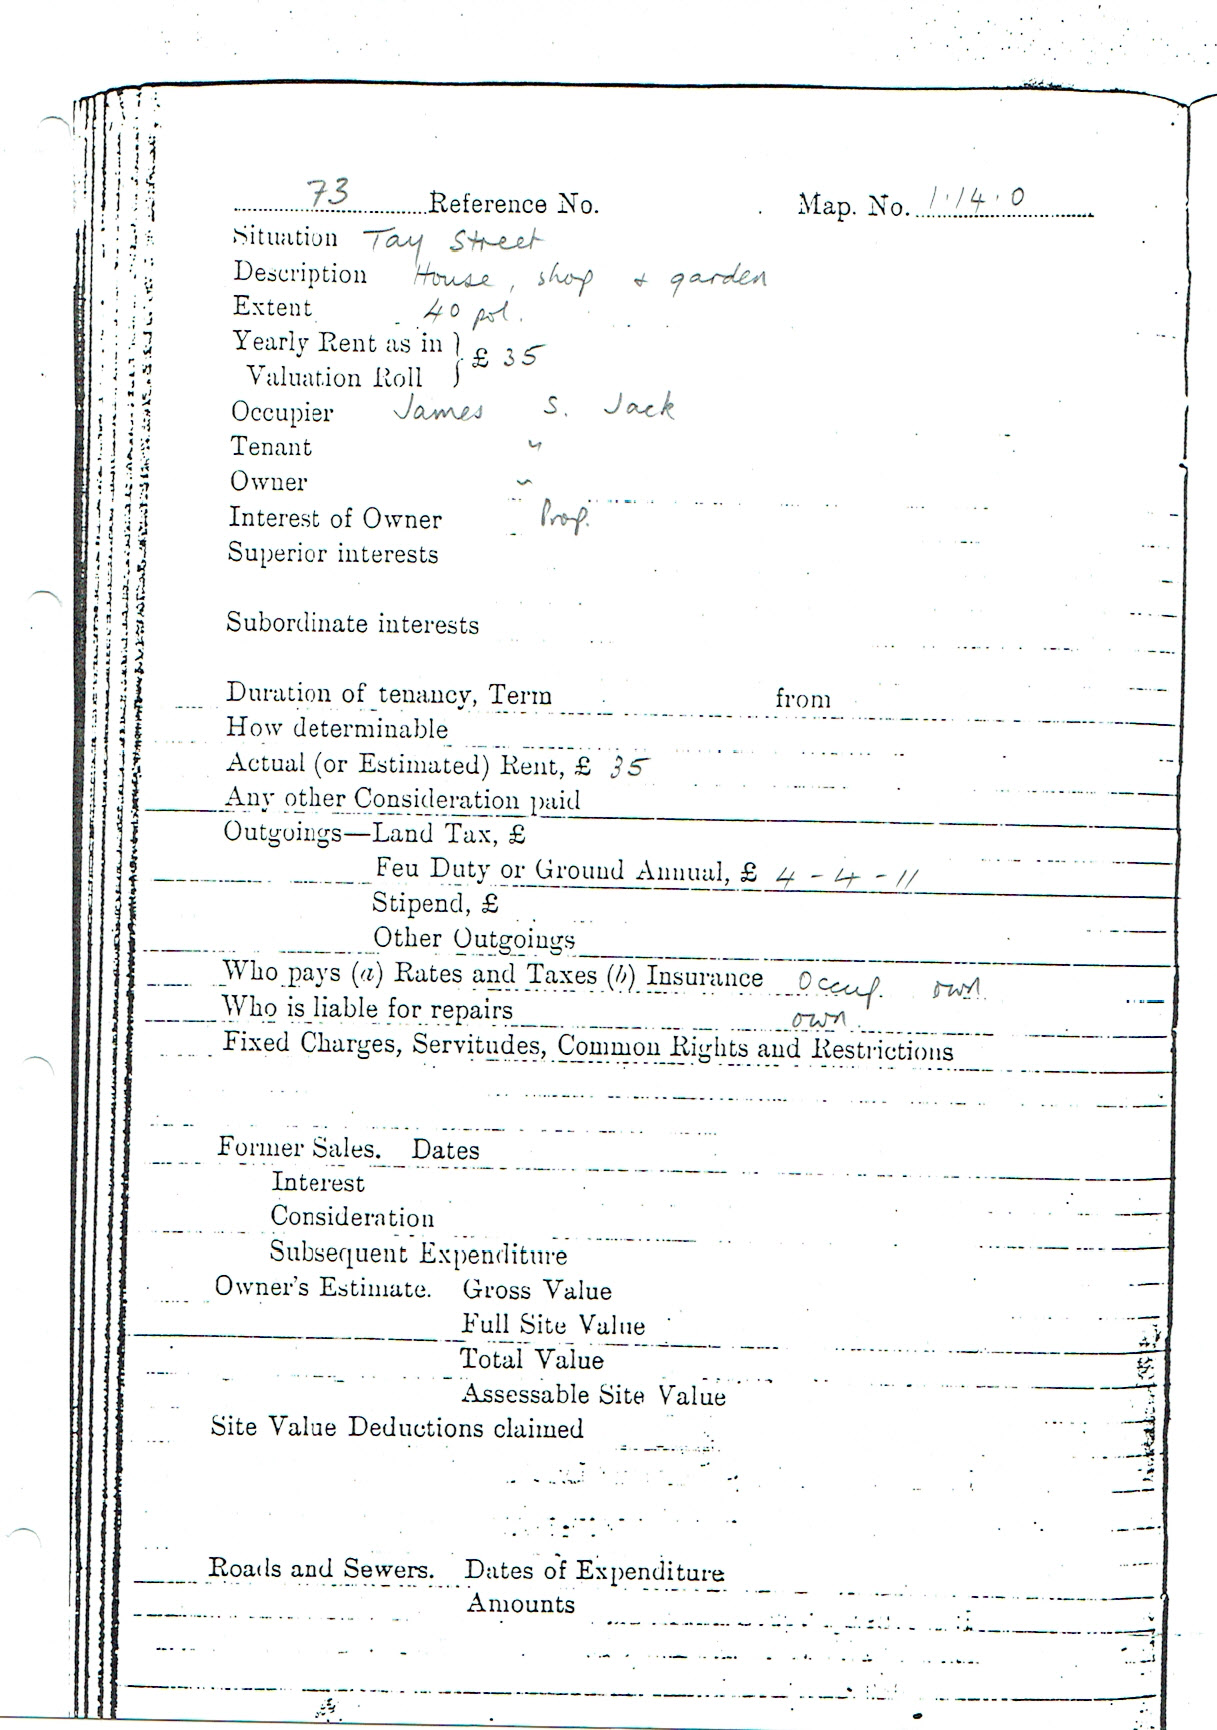 73 Reference No. Map. No. 1.14.0
Situation Tay Street
Description House, shop & garden
Extent 40 pol.
Yearly Rent as in } £ 35
Valuation Roll
Occupier James S. Jack
Tenant "
Owner "
Interest of Owner Prop.
Superior interests
Subordinate interests
Duration of tenancy, Term from
How determinable
Actual (or Estimated) Rent, £ 35
Any other Consideration paid
Outgoings—Land Tax, £
Feu Duty or Ground Annual, £ 4 - 4 - 11
Stipend, £
Other Outgoings
Who pays (a) Rates and Taxes (b) Insurance Occup. own
Who is liable for repairs own
Fixed Charges, Servitudes, Common Rights and Restrictions
Former Sales. Dates
Interest
Consideration
Subsequent Expenditure
Owner's Estimate. Gross Value
Full Site Value
Total Value
Assessable Site Value
Site Value Deductions claimed
Roads and Sewers. Dates of Expenditure
Amounts